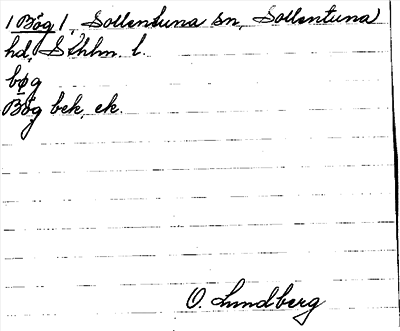 /Bög/, Sollentuna sn, Sollentuna
hd, Sthlm. l.
bøg
Bög bek, ek.
O. Lundberg